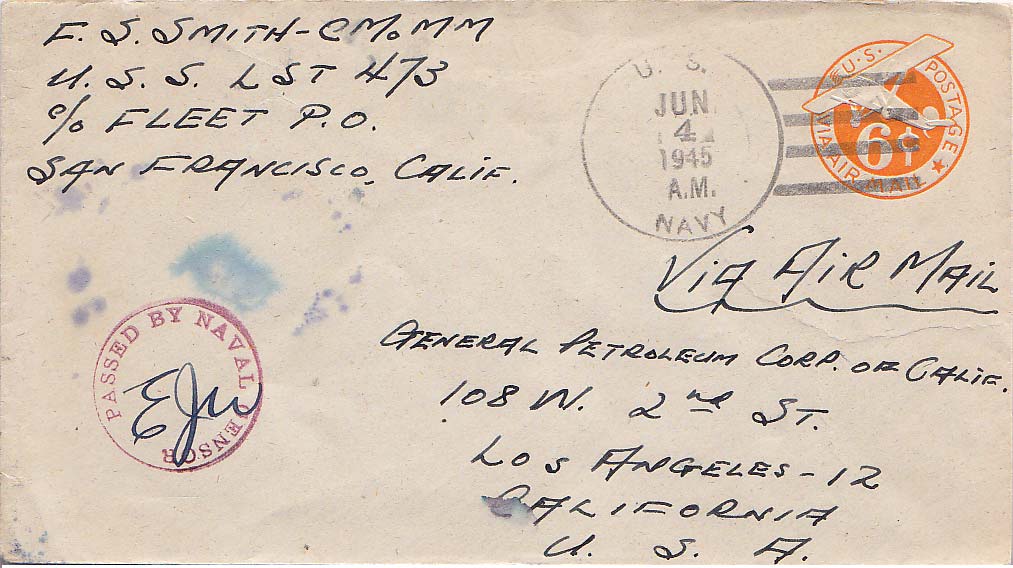 E. S. SMITH - CMoMM
U. S. S. LST 473
c/o FLEET P.O.
SAN FRANCISCO, CALIF.
U. S.
JUN.
4
1945
A.M.
NAVY
U.S. POSTAGE
VIA AIR MAIL
6¢
VIA AIR MAIL
PASSED BY NAVAL CENSOR
GENERAL PETROLEUM CORP. OF CALIF.
108 W. 2nd ST.
LOS ANGELES - 12
CALIFORNIA
U. S. A.